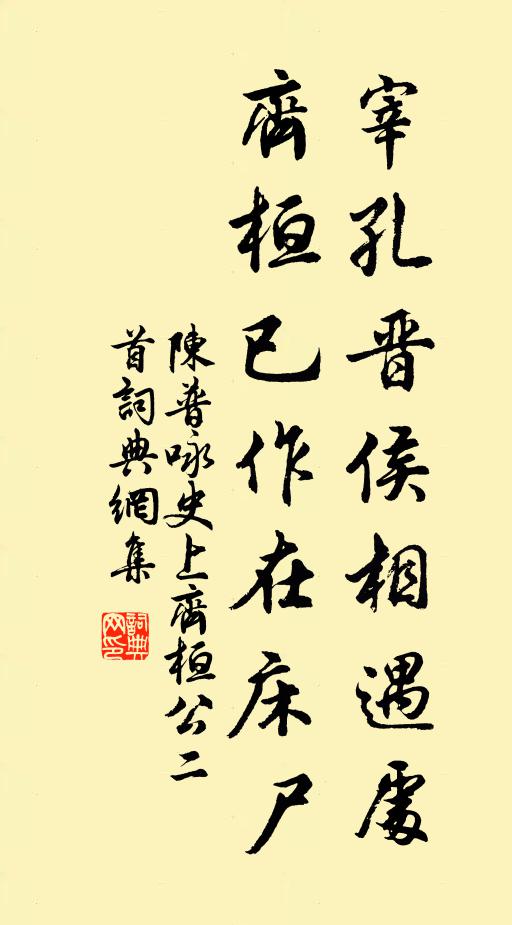 宰孔晋侯相遇處
齊桓已作在床尸
陳普咏史上齊桓公二
首詞典網集
詞典
网印